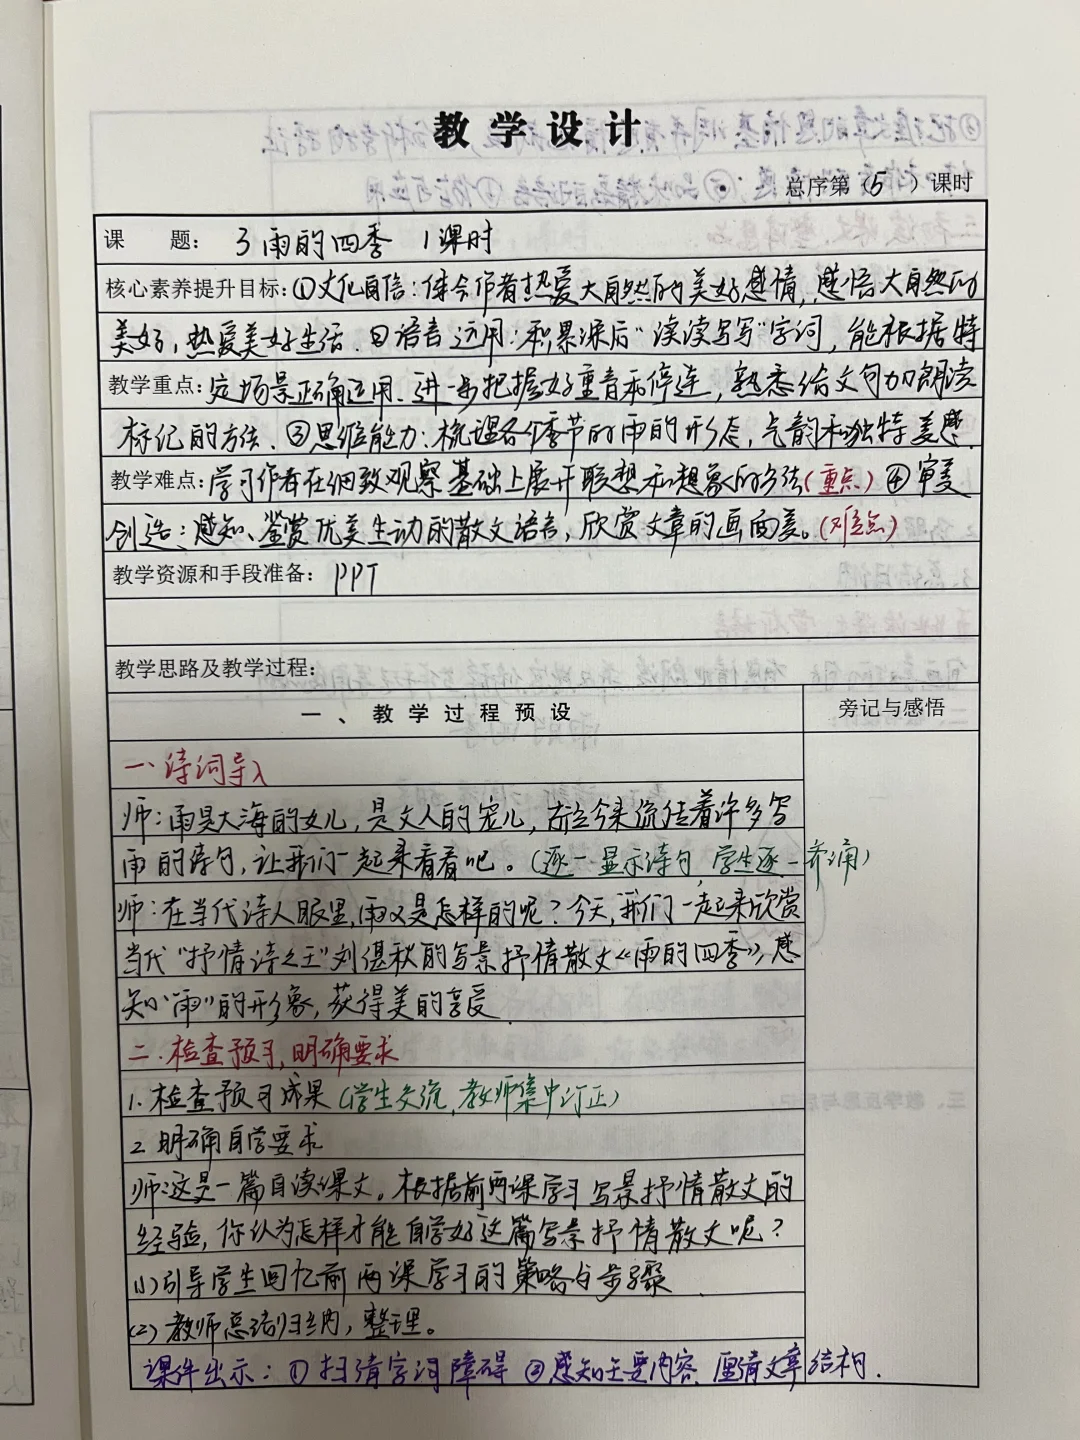 教学设计
总序第（5）课时
课 题： 3 雨的四季 1课时
核心素养提升目标：①文化自信：体会作者热爱大自然的美好感情，感悟大自然的
美好，热爱美好生活．②语言运用：积累课后“读读写写”字词，能根据特
教学重点：定场景正确运用．进一步把握好重音和停连，熟悉给文句加朗读
标记的方法．③思维能力：梳理各个季节的雨的形态，气韵和独特美感．
教学难点：学习作者在细致观察基础上展开联想和想象的方法（重点）④审美
创造：感知、鉴赏优美生动的散文语言，欣赏文章的画面美。（难点）
教学资源和手段准备：PPT
教学思路及教学过程：
一、教学过程预设 旁记与感悟
一、诗词导入
师：雨是大海的女儿，是文人的宠儿，古往今来流传着许多写
雨的诗句，让我们一起来看看吧。（逐一显示诗句，学生逐一齐诵）
师：在当代诗人眼里，雨又是怎样的呢？今天，我们一起来欣赏
当代“抒情诗之王”刘湛秋的写景抒情散文《雨的四季》，感
知“雨”的形象，获得美的享受．
二．检查预习，明确要求
1．检查预习成果（学生交流，教师集中订正）
2．明确自学要求
师：这是一篇自读课文。根据前两课学习写景抒情散文的
经验，你认为怎样才能自学好这篇写景抒情散文呢？
（1）引导学生回忆前两课学习的策略与步骤．
（2）教师总结归纳，整理。
课件出示：①扫清字词障碍 ②感知主要内容，厘清文章结构．